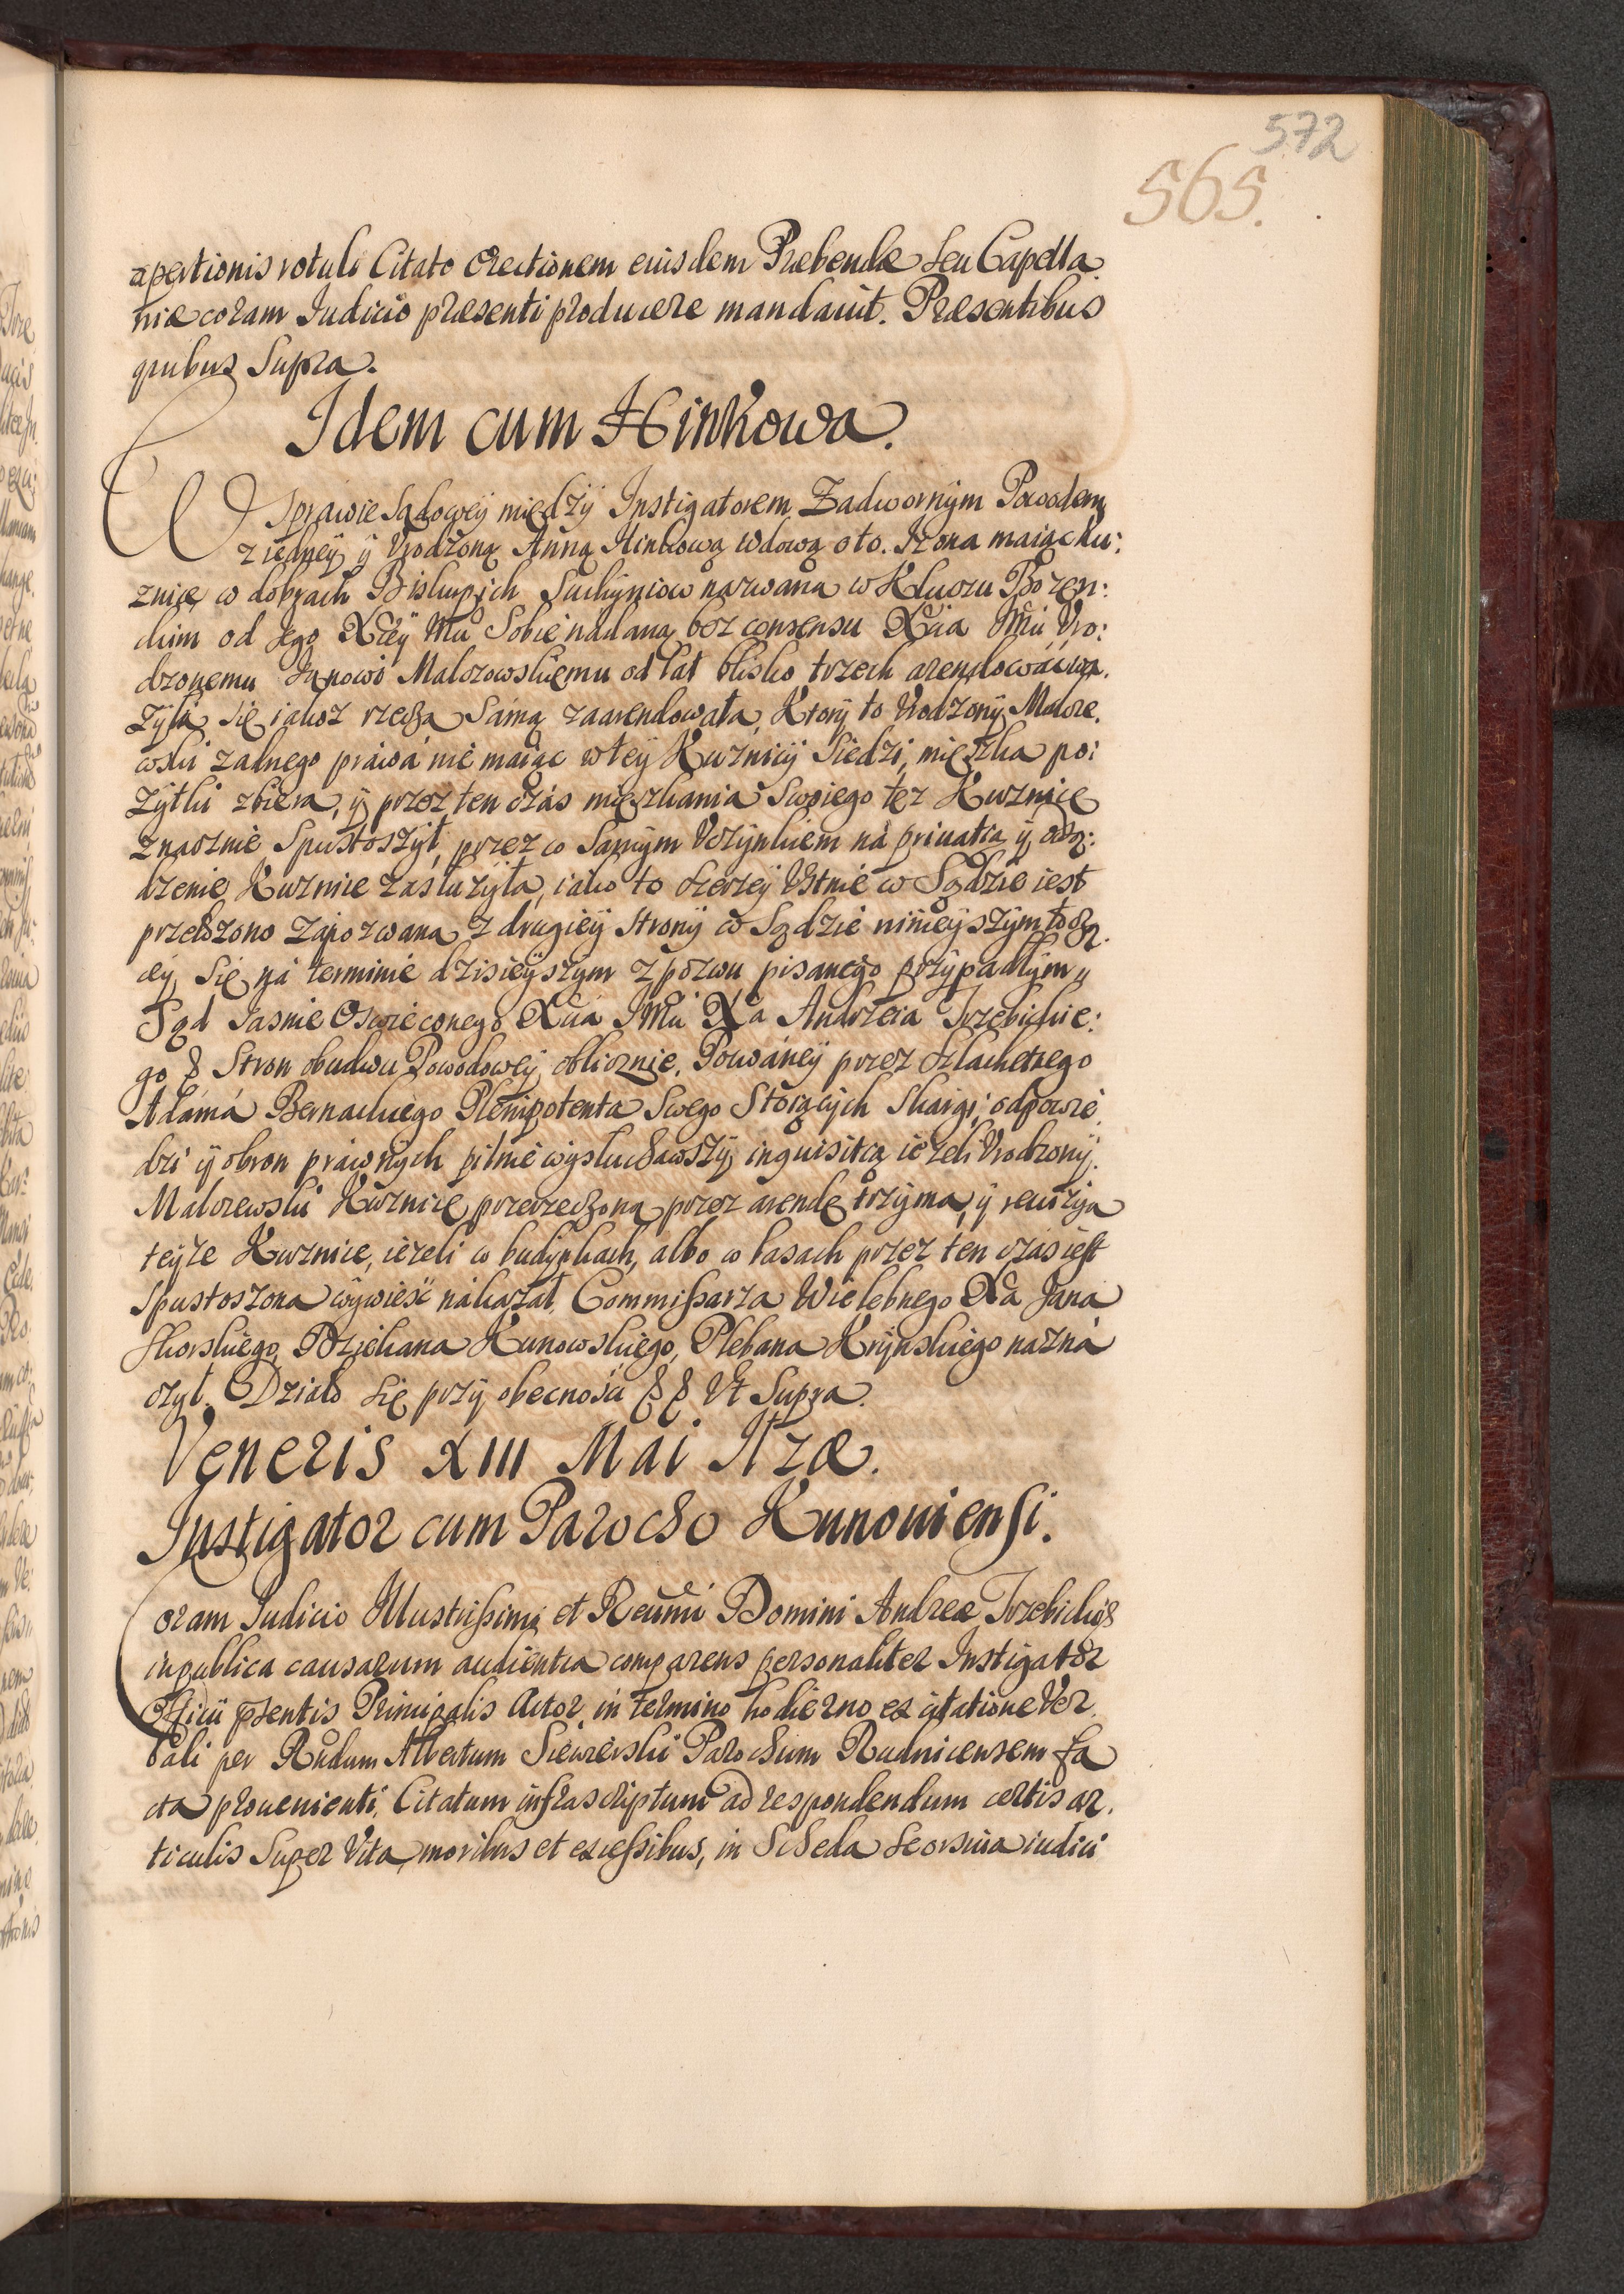 572
565.
apertionis rotuli Citato Erectionem eiusdem Præbendæ seu Capella
niæ coram Iudicio præsenti producere mandauit. Præsentibus
quibus Supra.
Idem cum Hinkowa.
W Sprawie Sądowey między Instigatorem Zadwornym Powodem
z iedney y Vrodzoną Anną Hinkową wdową o to. Iż ona maiąc Ku:
znicę w dobrach Biskupich Suchyniow nazwana w Kluczu Bozen:
ckim od Jego Xcey Mu Sobie nadaną bez consensu Xcia JMci Vro:
dzonemu Janowi Malczowskiemu od lat blisko trzech arendować wa.
zyła się iakoz rzeczą Samą zaarendowała, Ktory to Vrodzony Malcze.
wski zadnego prawa nie maiąc w tey Kuznicy Siedzi, mieszka po:
zytki zbiera, y przez ten czas mieszkania Swoiego tez Kuznicę
znacznie Spustoszył, przez co Samym Vczynkiem na priuatią y odsą:
dzenie Kuznice zasłuzyła, iako to szerzey Vstnie w Sądzie iest
przełozono Zapozwaną z drugiey Strony w Sądzie ninieyszym toczą.
cey Się na terminie dzisieyszym z pozwu pisanego przypadłym
Sąd Jasnie Oswieconego Xcia JMci Xa Andrzeia Trzebickie:
go & Stron obudwu Powodowey oblicznie, Pozwaney przez Szlachetnego
Adama Bernackiego Plenipotenta Swego Stoiących Skargi, odpowie
dzi y obron prawnych pilnie wysłuchawszy, inquisitią iezeli Vrodzony
Malczewski Kuznicę przerzeczoną przez arendę trzyma, y rewizyą
teyze Kuznice, iezeli w budynkach, albo w lasach przez ten czas iest
Spustoszona wywieść nakazał, Commissarza Wielebnego Xa Jana
Skorskiego, Dziekana Kunowskiego, Plebana Krynskiego nazna
czył. Działo się przy obecności & & Vt Supra.
Veneris XIII Mai Ilzæ.
Instigator cum Parocho Kunouiensi.
Coram Iudicio Illustrissimi et Reumi Domini Andreæ Trzebicki &
in publica causarum audientia comparens personaliter Instigator
Officii pñtis Principalis Actor, in termino hodierno ex citatione Ver
bali per Rndum Albertum Siewierski Parochum Rudnicensem fa
cta proueniente, Citatum infrascriptum ad respondendum certis ar.
ticulis Super Vita, moribus et excessibus, in Scheda Seorsiua iudici